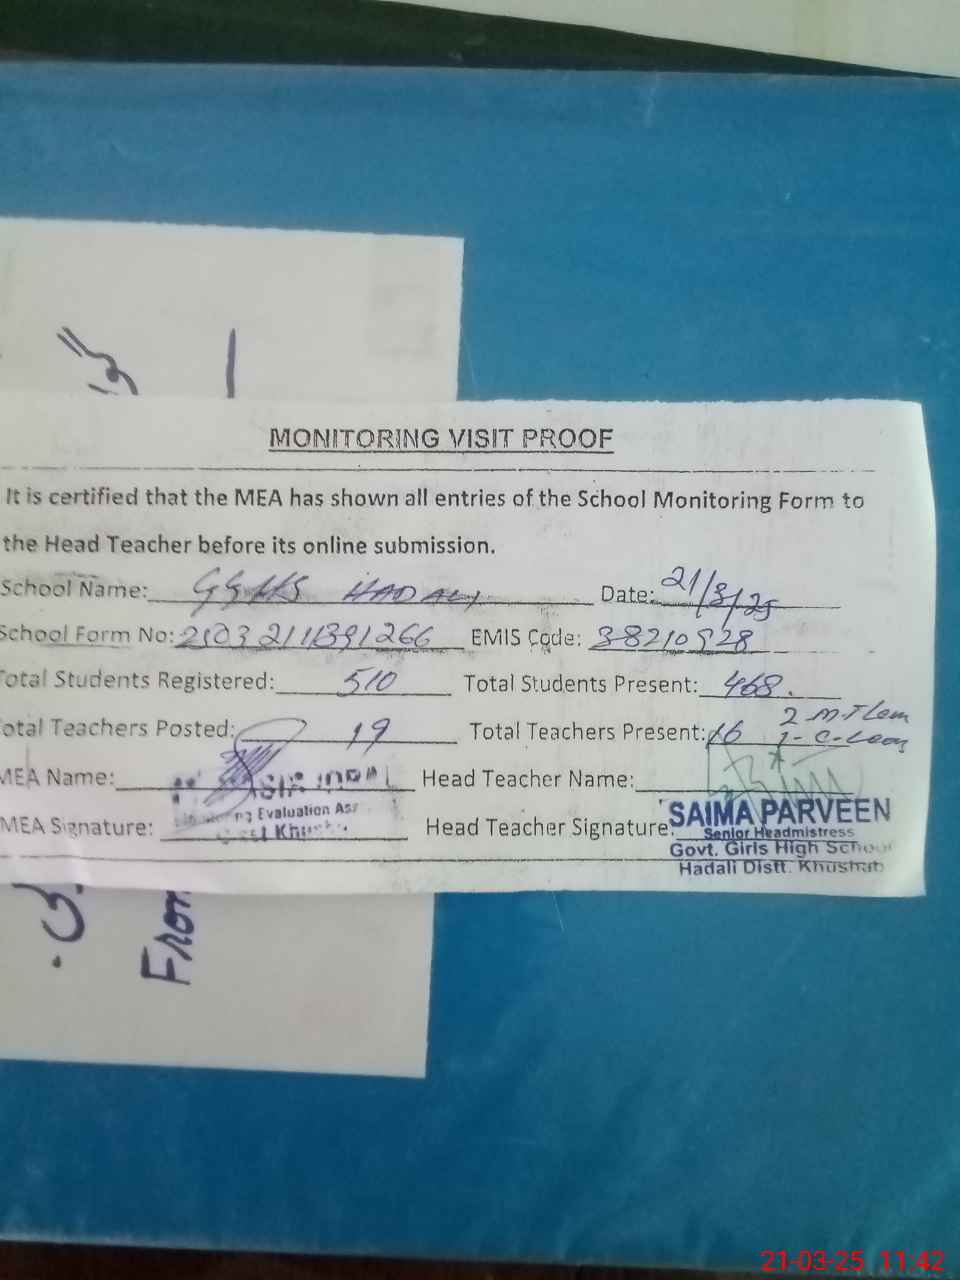 MONITORING VISIT PROOF
It is certified that the MEA has shown all entries of the School Monitoring Form to
the Head Teacher before its online submission.
School Name: GGHS HADALI Date: 21/3/25
School Form No: 21032111391266 EMIS Code: 38210528
Total Students Registered: 510 Total Students Present: 468.
Total Teachers Posted: 19 Total Teachers Present: 16 2 M-T Leav
1- C-Leav
MEA Name: Head Teacher Name:
Evaluation
MEA Signature: Head Teacher Signature:
SAIMA PARVEEN
Senior Headmistress
Govt. Girls High School
Hadali Distt. Khushab
From
21-03-25 11:42